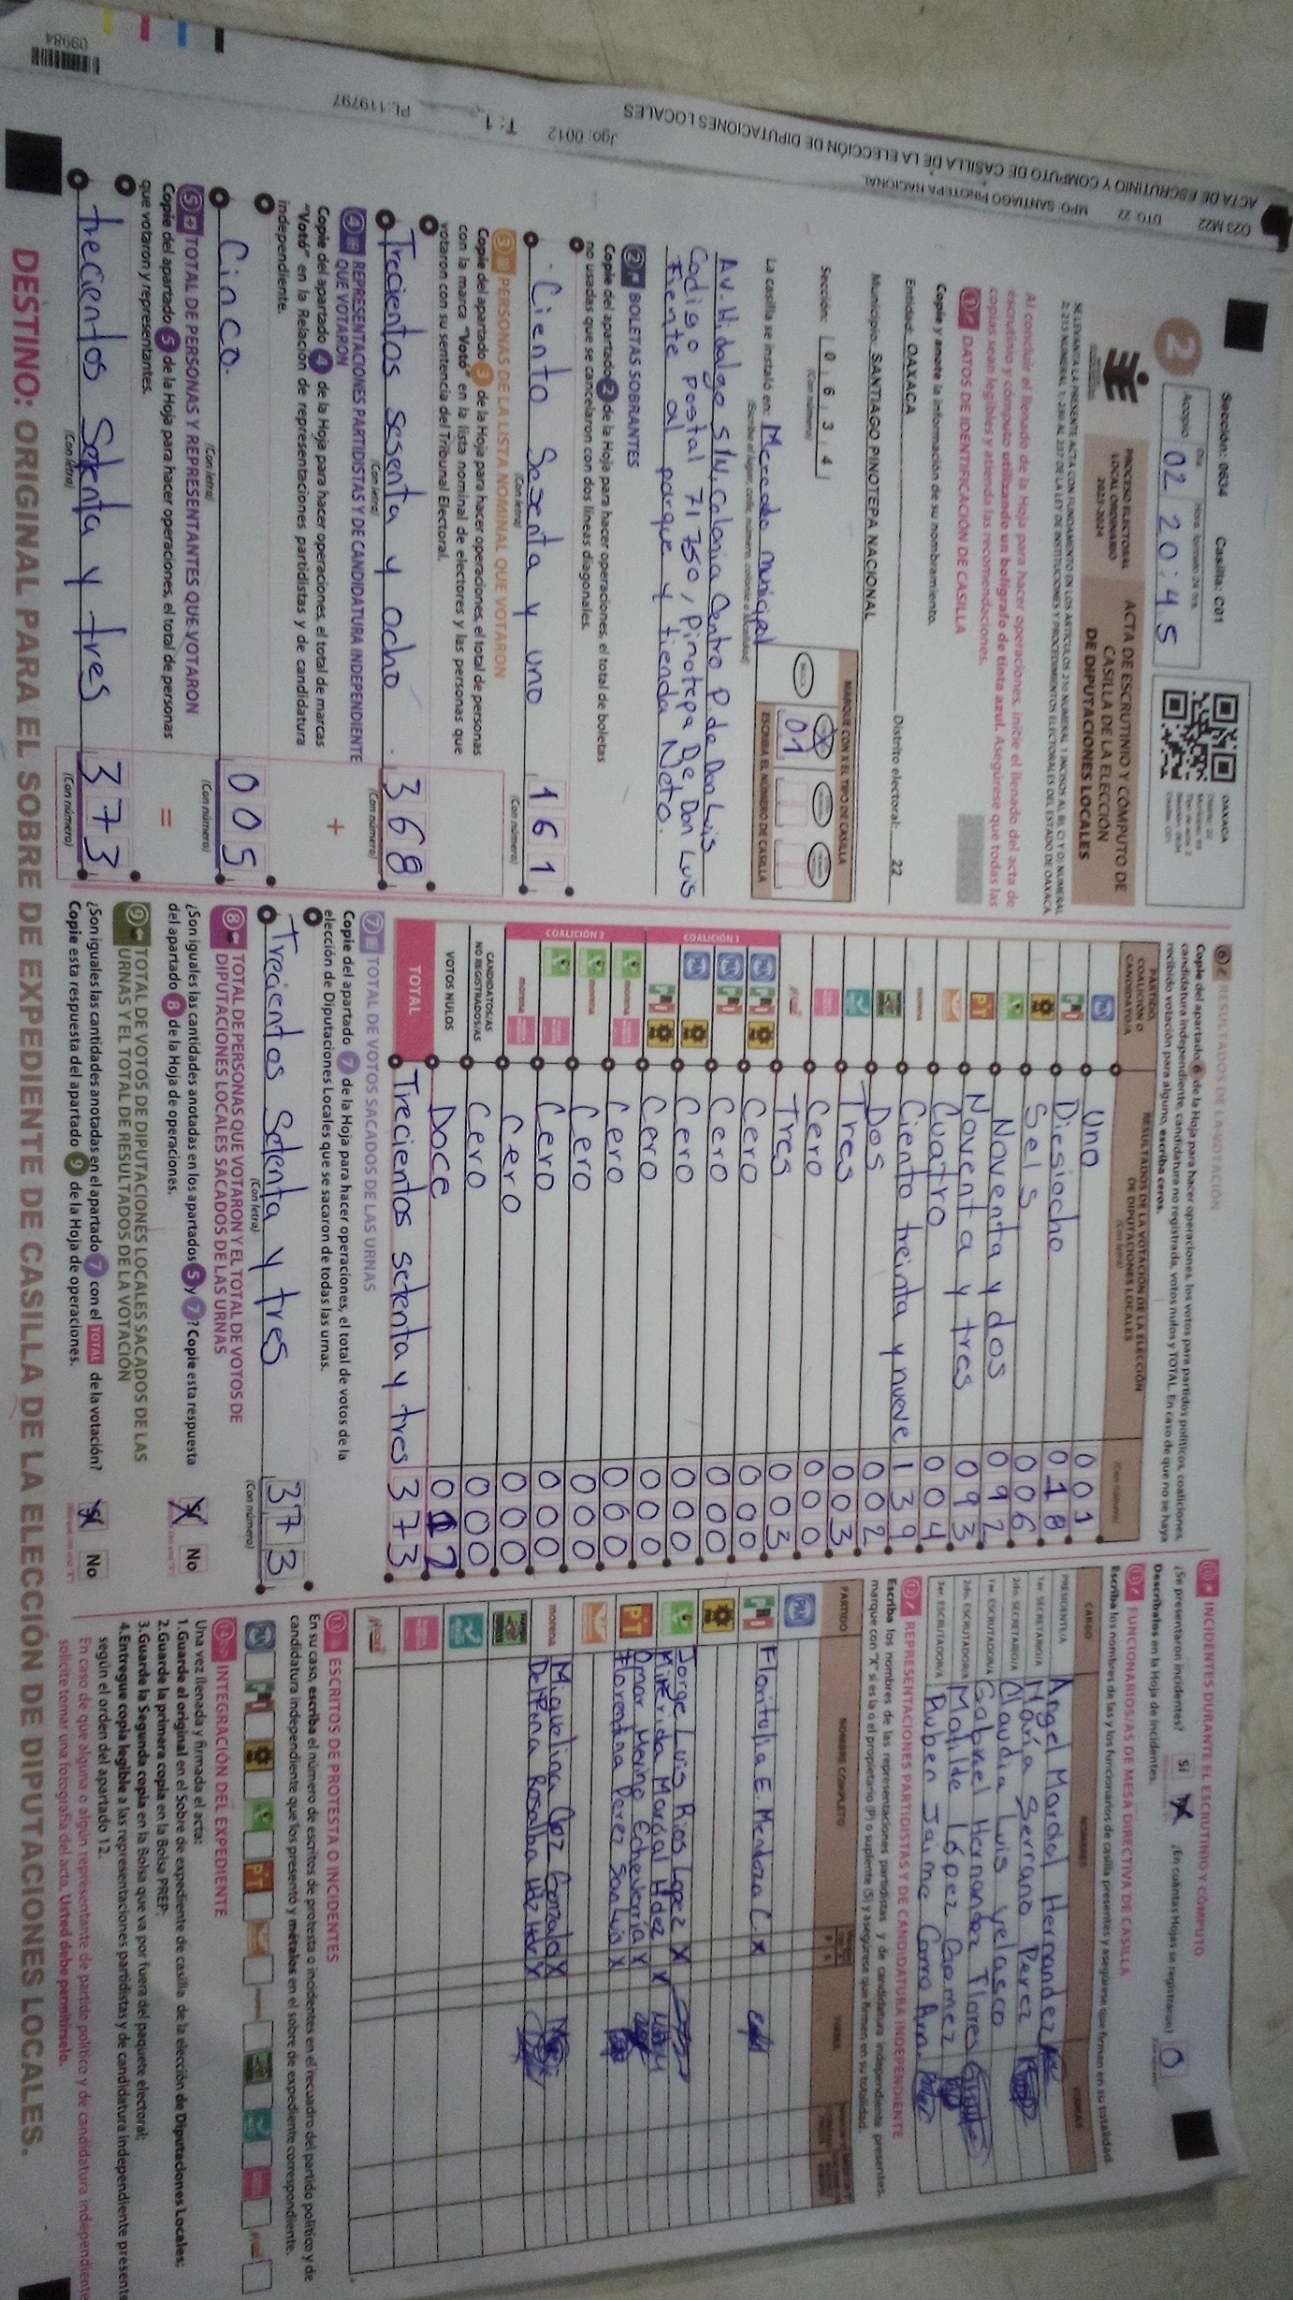 023 M22 DTO: 22 MPO: SANTIAGO PINOTEPA NACIONAL
ACTA DE ESCRUTINIO Y CÓMPUTO DE CASILLA DE LA ELECCIÓN DE DIPUTACIONES LOCALES
Jgo: 0012 T: 1 PL: 119797
09984
Sección: 0634 Casilla: C01
OAXACA
2
Acopio 02 20:45
PROCESO ELECTORAL
LOCAL ORDINARIO
2023-2024
ACTA DE ESCRUTINIO Y CÓMPUTO DE
CASILLA DE LA ELECCIÓN
DE DIPUTACIONES LOCALES
Al concluir el llenado de la Hoja para hacer operaciones, inicie el llenado del acta de
escrutinio y cómputo utilizando un bolígrafo de tinta azul. Asegúrese que todas las
copias sean legibles y atienda las recomendaciones.
1 DATOS DE IDENTIFICACIÓN DE CASILLA
Copie y anote la información de su nombramiento.
Entidad: OAXACA Distrito electoral: 22
Municipio: SANTIAGO PINOTEPA NACIONAL
Sección: 0634
(Con número)
MARQUE CON X EL TIPO DE CASILLA
ESCRIBA EL NÚMERO DE CASILLA
01
La casilla se instaló en: Mercado municipal
(Escriba el lugar, calle, número, colonia o localidad)
Av. Hidalgo S/N, Colonia Centro P. de Don Luis
Codigo Postal 71750, Pinotepa De Don Luis
Frente al parque y tienda Neto.
2 BOLETAS SOBRANTES
Copie del apartado 2 de la Hoja para hacer operaciones, el total de boletas
no usadas que se cancelaron con dos líneas diagonales.
Ciento Sesenta y uno 161
(Con letra) (Con número)
3 PERSONAS DE LA LISTA NOMINAL QUE VOTARON
Copie del apartado 3 de la Hoja para hacer operaciones, el total de personas
con la marca "Votó" en la lista nominal de electores y las personas que
votaron con su sentencia del Tribunal Electoral.
Trecientos sesenta y ocho. 368
(Con letra) (Con número)
4 REPRESENTACIONES PARTIDISTAS Y DE CANDIDATURA INDEPENDIENTE
QUE VOTARON
Copie del apartado 4 de la Hoja para hacer operaciones, el total de marcas
"Votó" en la Relación de representaciones partidistas y de candidatura
independiente.
+
Cinco. 005
(Con letra) (Con número)
5 TOTAL DE PERSONAS Y REPRESENTANTES QUE VOTARON
Copie del apartado 5 de la Hoja para hacer operaciones, el total de personas
que votaron y representantes.
=
trecientos setenta y tres 373
(Con letra) (Con número)
6 RESULTADOS DE LA VOTACIÓN
Copie del apartado 6 de la Hoja para hacer operaciones, los votos para partidos políticos, coaliciones,
candidatura independiente, candidatura no registrada, votos nulos y TOTAL. En caso de que no se haya
recibido votación para alguno, escriba ceros.
PARTIDO,
COALICIÓN O
CANDIDATO/A
RESULTADOS DE LA VOTACIÓN DE LA ELECCIÓN
DE DIPUTACIONES LOCALES
(Con letra)
(Con número)
PAN Uno 001
PRI Diesiocho 018
Seis 006
Noventa y dos 092
PT Noventa y tres 093
Cuatro 004
morena Ciento treinta y nueve 139
Dos 002
Tres 003
Cero 000
Tres 003
COALICIÓN 1
Cero 000
Cero 000
Cero 000
Cero 000
COALICIÓN 2
Cero 000
Cero 000
Cero 000
Cero 000
CANDIDATOS/AS
NO REGISTRADOS/AS
Cero 000
VOTOS NULOS Doce 012
TOTAL Trecientos setenta y tres 373
7 TOTAL DE VOTOS SACADOS DE LAS URNAS
Copie del apartado 7 de la Hoja para hacer operaciones, el total de votos de la
elección de Diputaciones Locales que se sacaron de todas las urnas.
Trecientos Setenta y tres 373
(Con letra) (Con número)
8 TOTAL DE PERSONAS QUE VOTARON Y EL TOTAL DE VOTOS DE
DIPUTACIONES LOCALES SACADOS DE LAS URNAS
¿Son iguales las cantidades anotadas en los apartados 5 y 7? Copie esta respuesta
del apartado 8 de la Hoja de operaciones.
X No
9 TOTAL DE VOTOS DE DIPUTACIONES LOCALES SACADOS DE LAS
URNAS Y EL TOTAL DE RESULTADOS DE LA VOTACIÓN
¿Son iguales las cantidades anotadas en el apartado 7 con el TOTAL de la votación?
Copie esta respuesta del apartado 9 de la Hoja de operaciones.
X No
10 INCIDENTES DURANTE EL ESCRUTINIO Y CÓMPUTO
¿Se presentaron incidentes? Sí ¿En cuántas Hojas se registraron? 0
Descríbalos en la Hoja de incidentes.
11 FUNCIONARIOS/AS DE MESA DIRECTIVA DE CASILLA
Escriba los nombres de las y los funcionarios de casilla presentes y asegúrese que firmen en su totalidad.
CARGO NOMBRES FIRMAS
PRESIDENTE/A Angel Marcial Hernandez
1er. SECRETARIO/A María Serrano Perez
2do. SECRETARIO/A Claudia Luis Velasco
1er. ESCRUTADOR/A Gabriel Hernandez Flores
2do. ESCRUTADOR/A Matilde López Gaomez
3er. ESCRUTADOR/A Ruben Jaime
12 REPRESENTACIONES PARTIDISTAS Y DE CANDIDATURA INDEPENDIENTE
Escriba los nombres de las representaciones partidistas y de candidatura independiente presentes,
marque con "X" si es la o el propietario (P) o suplente (S) y asegúrese que firmen en su totalidad.
PARTIDO NOMBRE COMPLETO FIRMA
Floritulia E. Mendoza C. X
Jorge Luis Rios Lopez X
Marcial Hdez X
PT Omar Merino Echeverria X
Florentina Perez San Luis X
morena Miguelina Gonzalez X
Delfina Rosalba X
13 ESCRITOS DE PROTESTA O INCIDENTES
En su caso, escriba el número de escritos de protesta o incidentes en el recuadro del partido político y de
candidatura independiente que los presentó y métalos en el sobre de expediente correspondiente.
14 INTEGRACIÓN DEL EXPEDIENTE
Una vez llenada y firmada el acta:
1. Guarde el original en el Sobre de expediente de casilla de la elección de Diputaciones Locales;
2. Guarde la primera copia en la Bolsa PREP;
3. Guarde la Segunda copia en la Bolsa que va por fuera del paquete electoral;
4. Entregue copia legible a las representaciones partidistas y de candidatura independiente present
según el orden del apartado 12.
En caso de que alguna o algún representante de partido político y de candidatura independiente
solicite tomar una fotografía del acta, Usted debe permitírselo.
DESTINO: ORIGINAL PARA EL SOBRE DE EXPEDIENTE DE CASILLA DE LA ELECCIÓN DE DIPUTACIONES LOCALES.